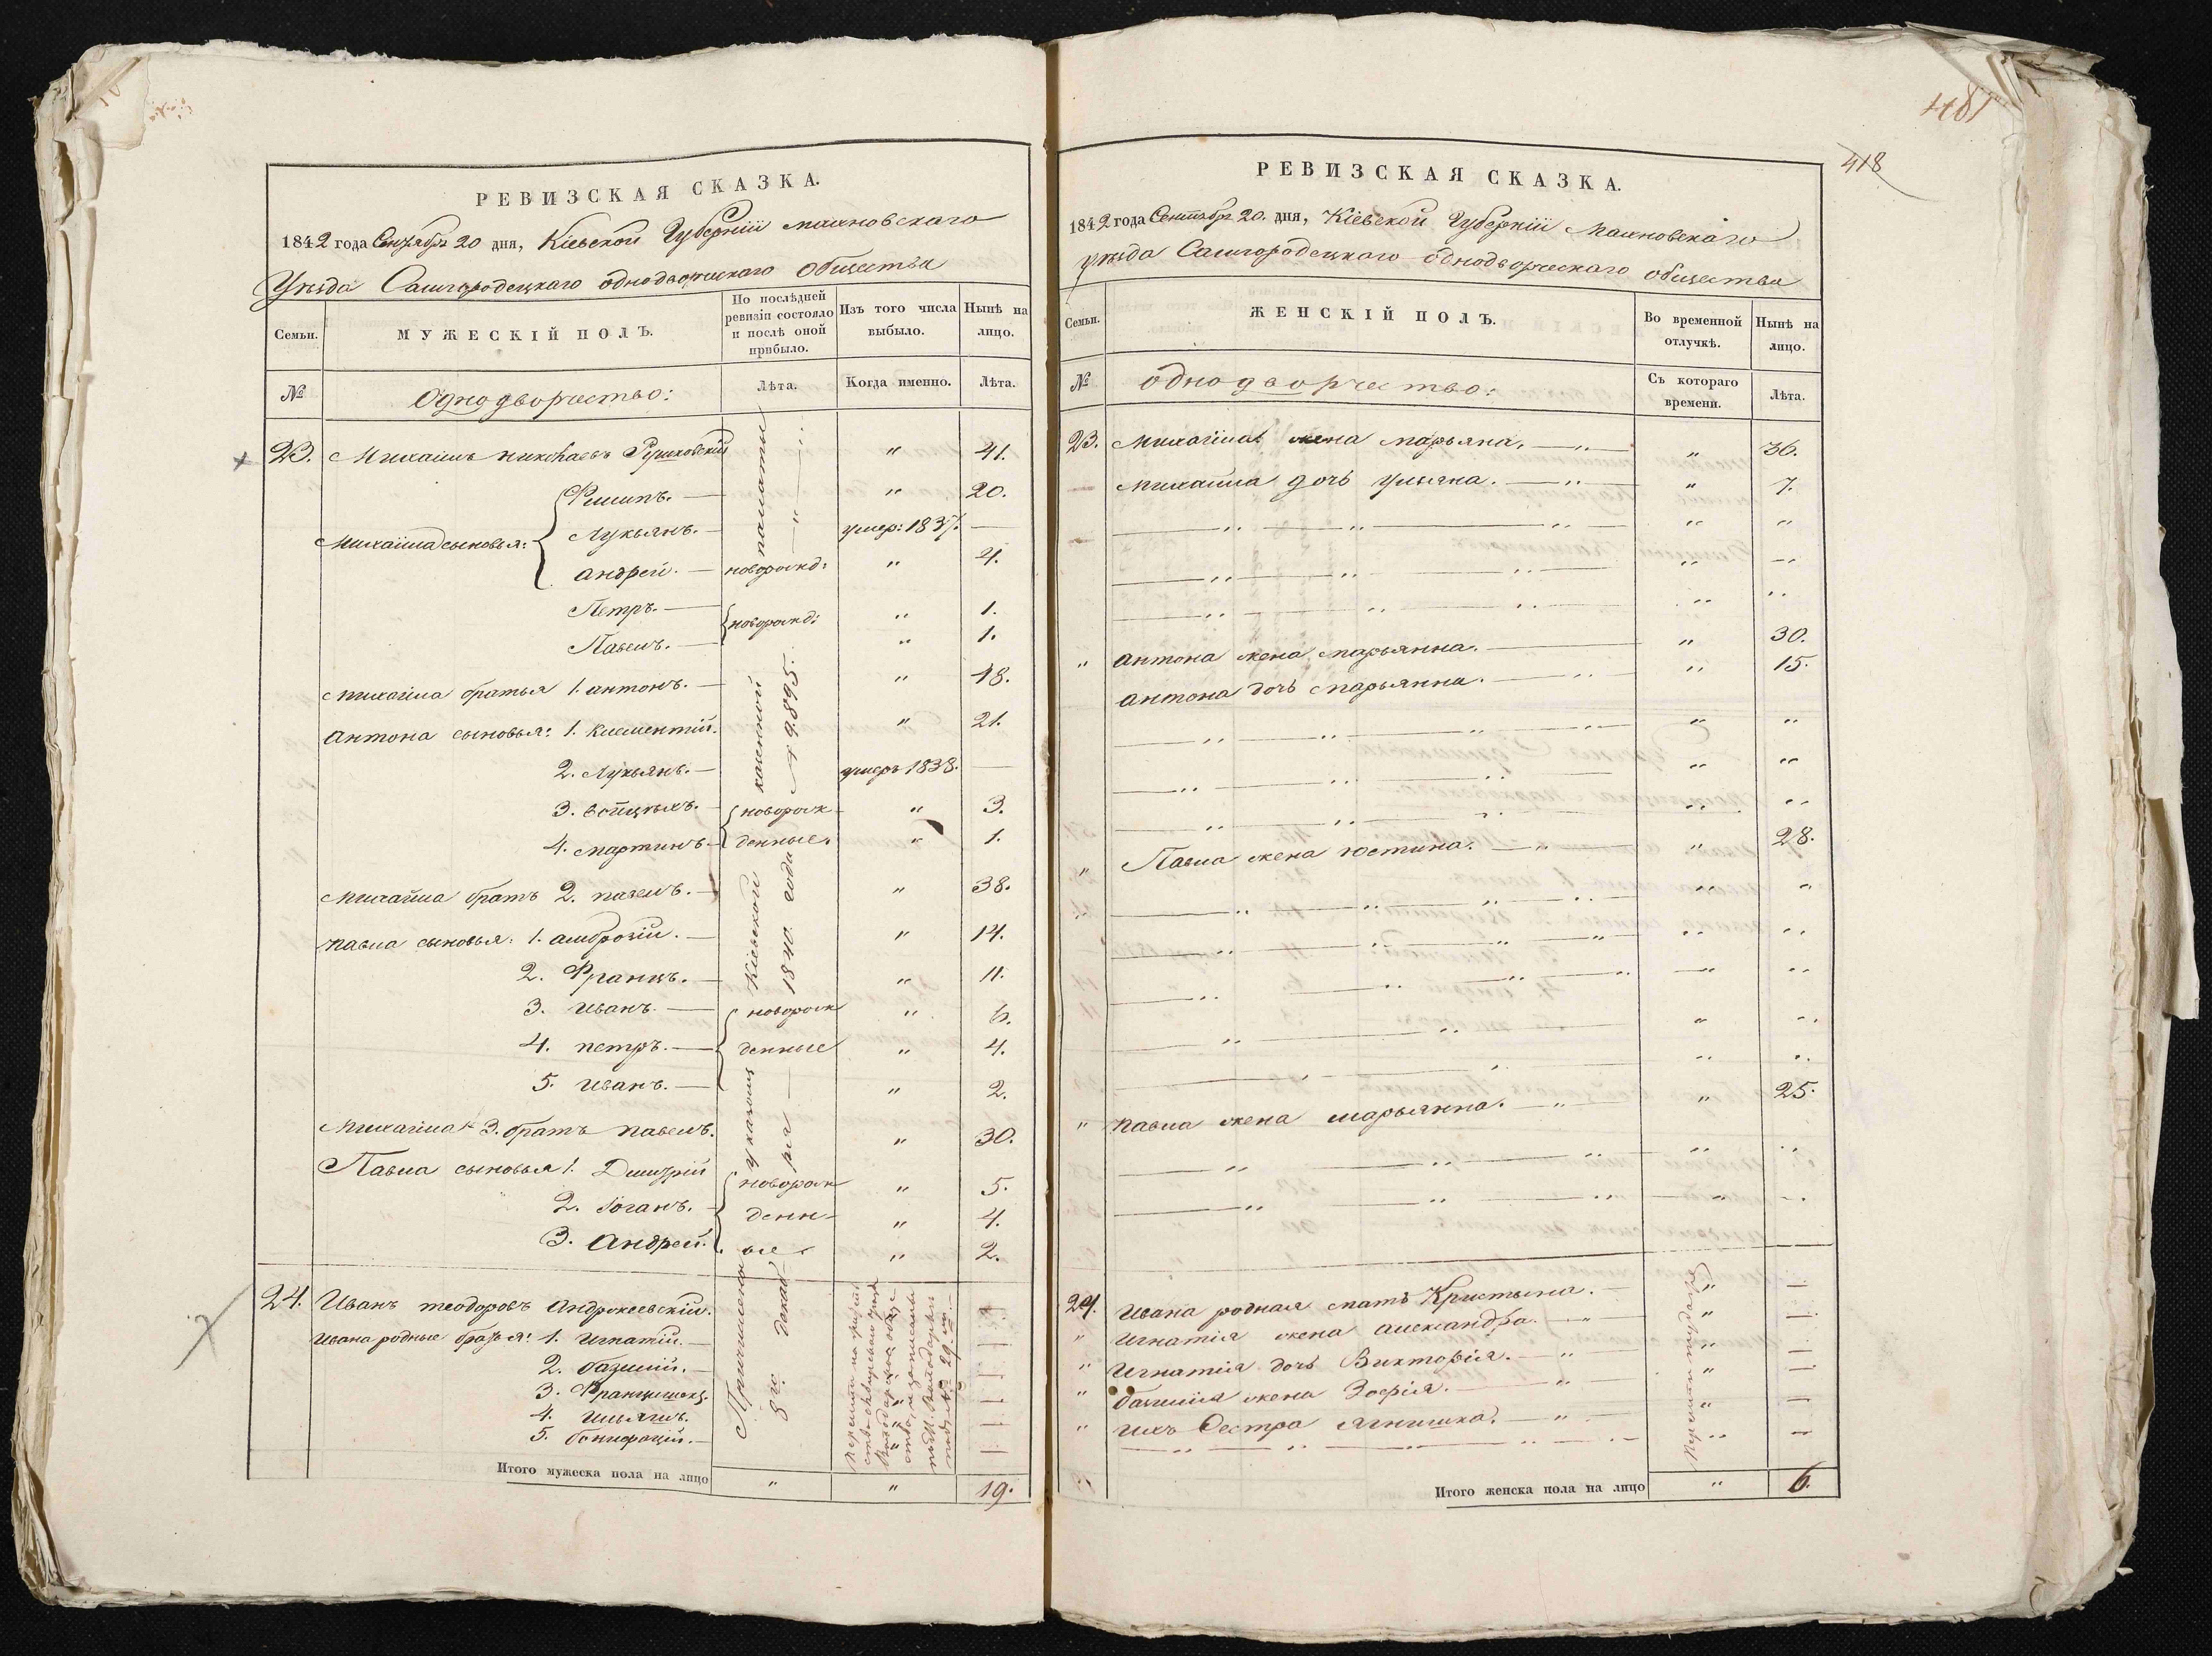 РЕВИЗСКАЯ СКАЗКА.
1842 года Сентября 20 дня, Кіевской Губерніи Махновскаго
Уѣзда Самгородецкаго однодворческаго общества
Семьи.
МУЖЕСКІЙ ПОЛЪ.
По послѣдней ревизіи состояло и послѣ оной прибыло.
Изъ того числа выбыло.
Нынѣ на лицо.
№
Однодворчество:
Лѣта.
Когда именно.
Лѣта.
23. Михаилъ Николаевъ " 41.
Михаила сыновья: Филипъ. " 20.
Лукьянъ. умер: 1837.
андрей. новорожд: " 4.
Петръ. новорожд: " 1.
Павелъ. " 1.
Михаила братья 1. антонъ. " 48.
антона сыновья: 1. Клементій. " 21.
2. Лукьянъ. умеръ 1838.
3. войцѣхъ. новорож " 3.
4. Мартинъ. денные. " 1.
Михаила братъ 2. павелъ. " 38.
павла сыновья: 1. амброзій. " 14.
2. Францъ. " 11.
3. иванъ. новорож " 6.
4. петръ. денные " 4.
5. иванъ. " 2.
Михаила 3. братъ павелъ. " 30.
Павла сыновья 1. Дмитрій новорож " 5.
2. Іоганъ. денн- " 4.
3. Андрей. ые " 2.
24. Иванъ теодоровъ Андржеевскій.
Ивана родные братья: 1. игнатій.
2. базилій.
3. Францишекъ.
4. ильяшъ.
5. бонифацій.
Причислены указомъ Кіевской казенной палаты
8го. декабря 1840. года № 9.895.
Итого мужеска пола на лицо " " 19.
481
418
РЕВИЗСКАЯ СКАЗКА.
1842 года Сентябр 20. дня, Кіевской Губерніи Махновскаго
уѣзда Самгородецкаго однодворческаго общества
Семьи.
ЖЕНСКІЙ ПОЛЪ.
Во временной отлучкѣ.
Нынѣ на лицо.
№
однодворчество:
Съ котораго времени.
Лѣта.
23. Михайла жена марьяна. " 36.
Михаила дочь ульяна. " 7.
" антона жена марьянна. " 30.
антона дочь марьянна. " 15.
" Павла жена юстина. " 28.
" павла жена марьянна. " 25.
24. Ивана родная мать Кристына. "
" Игнатія жена александра. "
" Игнатія дочь Викторія. "
" базилія жена Зофія. "
" ихъ Сестра Агнишка. "
Итого женска пола на лицо " 6.